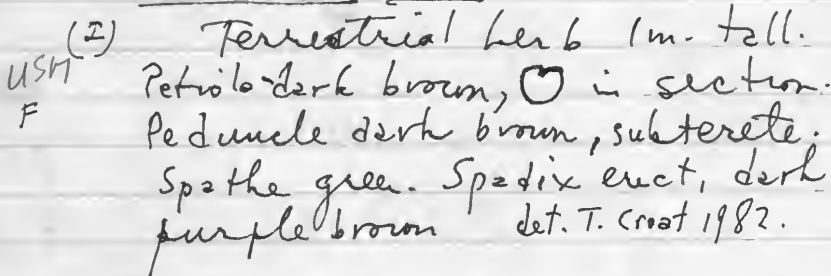 (I) Terrestrial herb 1m. tall.
USM Petiole dark brown, in section.
F Peduncle dark brown, subterete.
Spathe green. Spadix erect, dark
purple brown det. T. Croat 1982.